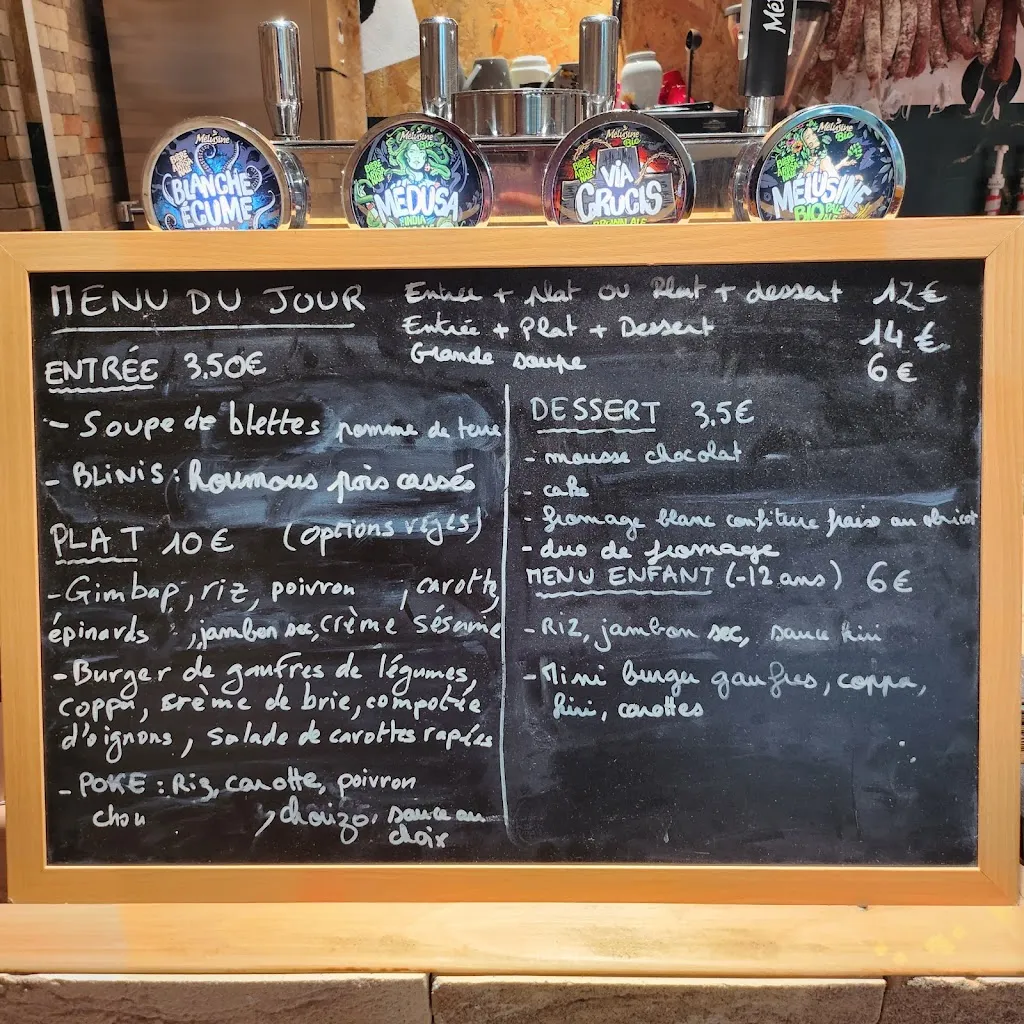 Mélusine
BLANCHE
ÉCUME
Mélusine
BIO
MÉDUSA
INDIA
Mélusine
BIO
VIA
CRUCIS
BROWN ALE
Mélusine
BIO
MÉLUSINE
BIO
Mél
MENU DU JOUR
Entrée + plat ou Plat + dessert 12€
Entrée + Plat + Dessert 14€
Grande soupe 6€
ENTRÉE 3.50€
- Soupe de blettes pomme de terre
- BLINIS : houmous pois cassés
PLAT 10€ (options végés)
- Gimbap, riz, poivron , carotte,
épinards , jambon sec, crème sésame
- Burger de gaufres de légumes,
coppa, crème de brie, compotée
d'oignons, salade de carottes rapées
- POKE : Riz, carotte, poivron
chou , chorizo, sauce au
choix
DESSERT 3,5€
- mousse chocolat
- cake
- fromage blanc confiture fraise ou abricot
- duo de fromage
MENU ENFANT (-12 ans) 6€
- Riz, jambon sec, sauce kiri
- Mini burger gaufres, coppa,
kiri, carottes